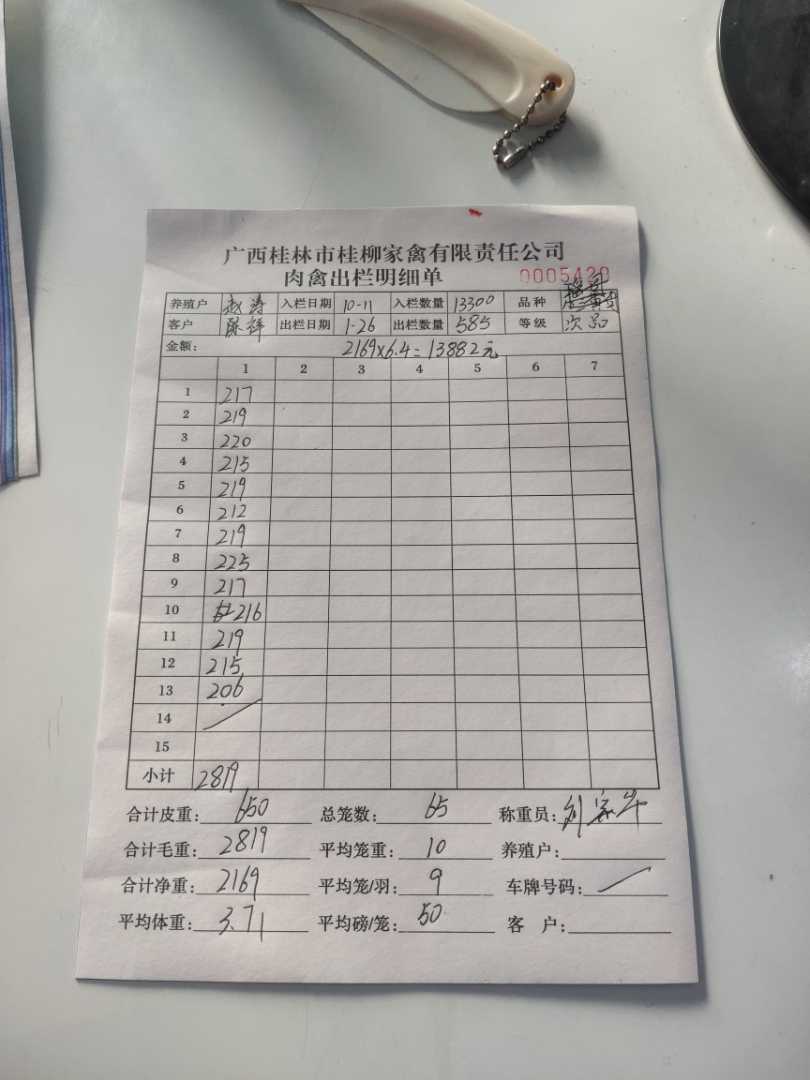 广西桂林市桂柳家禽有限责任公司
肉禽出栏明细单 0005420
养殖户 赵涛 入栏日期 10-11 入栏数量 13300 品种
客户 陈祥 出栏日期 1-26 出栏数量 585 等级 次品
金额: 2169×6.4=13882元
1 2 3 4 5 6 7
1 217
2 219
3 220
4 215
5 219
6 212
7 219
8 225
9 217
10 216
11 219
12 215
13 206
14
15
小计 2819
合计皮重: 650 总笼数: 65 称重员: 刘家华
合计毛重: 2819 平均笼重: 10 养殖户:
合计净重: 2169 平均笼/羽: 9 车牌号码:
平均体重: 3.71 平均磅/笼: 50 客 户: